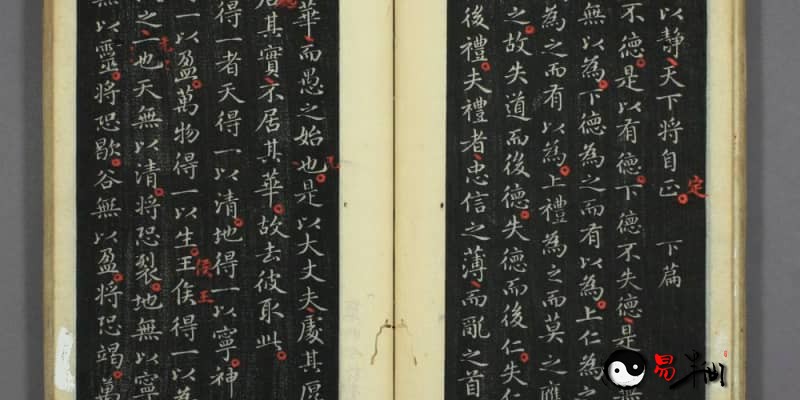 以靜天下將自正 下篇
定
不德是以有德下德不失德是
無以為下德為之而有以為上仁為之
為之而有以為上禮為之而莫之應
之故失道而後德失德而後仁失仁
後禮夫禮者忠信之薄而亂之首
華而愚之始也是以大丈夫處其厚
居其實不居其華故去彼取此
得一者天得一以清地得一以寧神
一以盈萬物得一以生王侯得一以為
侯王
之一也天無以清將恐裂地無以寧
以靈將恐歇谷無以盈將恐竭萬
易